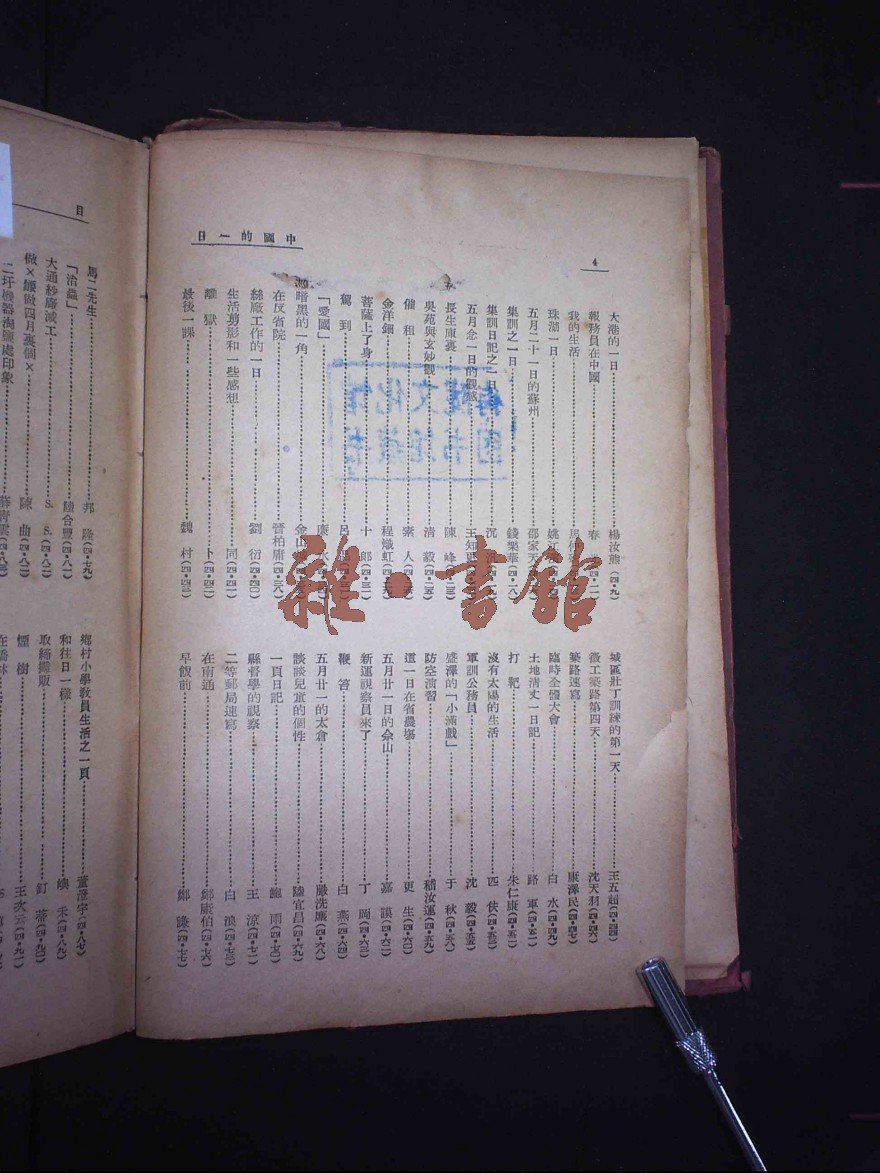 4
中國的一日
大港的一日 楊汝熊(四·九)
報務員在中國 春
我的生活
珠湖一日 姚江
五月二十一日的蘇州 邵家天
集訓之一日 錢樂華(四·一八)
集訓日記之一日 沉
五月念一日的觀感 王知更
長生庫裏 陳峰(四·二三)
吳苑與玄妙觀 清毅(四·二五)
催租 素人(四·二六)
金洋鈿 程燉虹(四·二九)
菩薩上了身 十郎(四·三一)
駕到 呂
「愛國」
暗黑的一角 金山
在反省院 晉柏庸(四·三八)
絲廠工作的一日 劉衍(四·四〇)
生活剪影和一些感想 同(四·四一)
離獄 卜(四·四二)
最後一課 魏村(四·四三)
城區壯丁訓練的第一天 王五超(四·四四)
徵工築路第四天 沈天羽(四·四六)
築路速寫 康澤民(四·四七)
臨時全體大會 白水(四·四九)
土地清丈一日記 路軍(四·五一)
打靶 朱仁康(四·五二)
沒有太陽的生活 匹俠(四·五三)
軍訓公務員 沈毅(四·五五)
盛澤的「小滿戲」 于秋(四·五八)
防空演習 稽汝運(四·五九)
這一日在省農場 更生(四·六〇)
五月廿一日的佘山 嘉謨(四·六二)
新運視察員來了 丁岡(四·六三)
鞭笞 白燕(四·六四)
五月廿一的太倉 嚴洗塵(四·六八)
談談兒童的個性 陸宜昌(四·六九)
一頁日記 鮑雨(四·七〇)
縣督學的視察 王涼(四·七一)
二等郵局速寫 白浪(四·七三)
在南通 鄭康伯(四·七六)
早飯前 鄭謙(四·七七)
目
馬二先生 邦隆(四·七九)
「治蟲」 陸合豐(四·八一)
大通紗廠減工 S. S.(四·八二)
做×緩做四月裏個× 陳曲(四·八二)
二圩機器淘鹽處印象 薛青雲(四·八三)
鄉村小學敎員生活之一頁 董澄宇(四·八七)
和往日一樣 嶼禾(四·八九)
取締攤販 釘蒂(四·九〇)
煙樹 王次云(四·九一)
在橋林
雜·書館